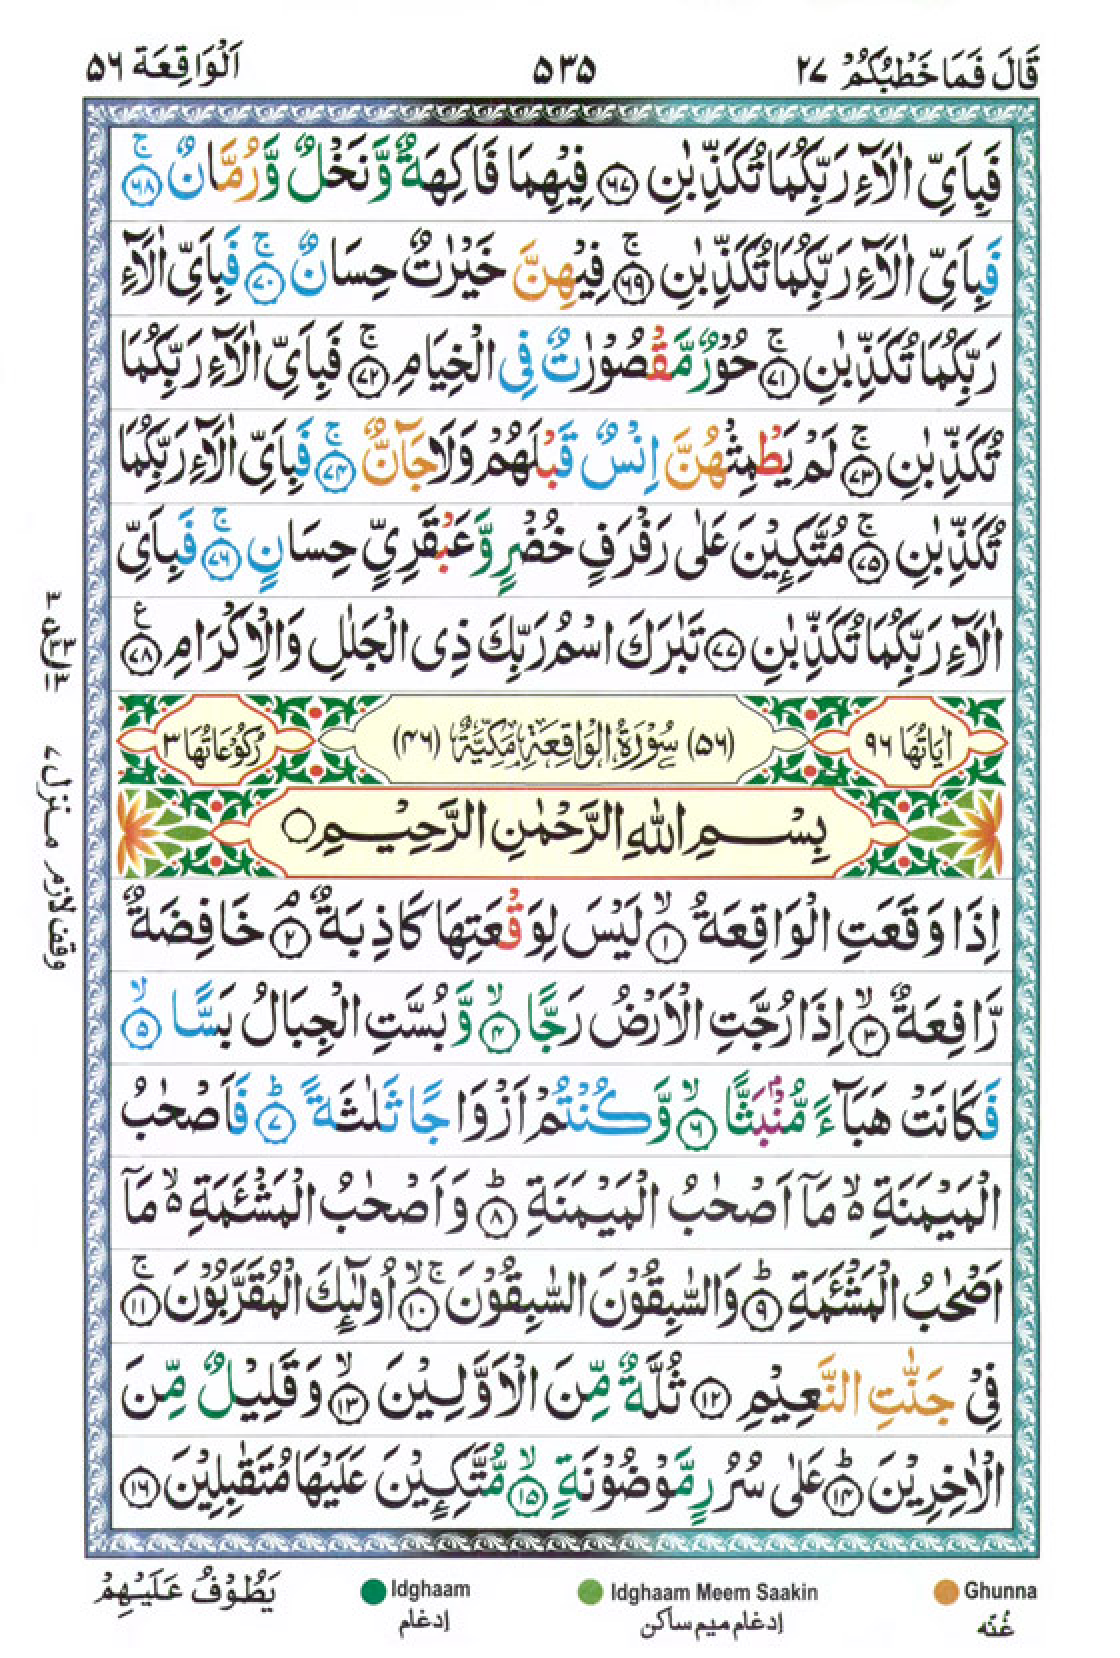 قَالَ فَمَا خَطْبُكُمْ ٢٧ ۵۳۵ اَلْوَاقِعَة ۵۶
فَبِاَیِّ اٰلَآءِ رَبِّكُمَا تُكَذِّبٰنِ ﴿۶۷﴾ فِیْهِمَا فَاكِهَةٌ وَّ نَخْلٌ وَّ رُمَّانٌ ﴿۶۸﴾ۚ
فَبِاَیِّ اٰلَآءِ رَبِّكُمَا تُكَذِّبٰنِ ﴿۶۹﴾ۚ فِیْهِنَّ خَیْرٰتٌ حِسَانٌ ﴿۷۰﴾ۚ فَبِاَیِّ اٰلَآءِ
رَبِّكُمَا تُكَذِّبٰنِ ﴿۷۱﴾ۚ حُوْرٌ مَّقْصُوْرٰتٌ فِی الْخِیَامِ ﴿۷۲﴾ۚ فَبِاَیِّ اٰلَآءِ رَبِّكُمَا
تُكَذِّبٰنِ ﴿۷۳﴾ۚ لَمْ یَطْمِثْهُنَّ اِنْسٌ قَبْلَهُمْ وَ لَا جَآنٌّ ﴿۷۴﴾ۚ فَبِاَیِّ اٰلَآءِ رَبِّكُمَا
تُكَذِّبٰنِ ﴿۷۵﴾ۚ مُتَّكِـِٕیْنَ عَلٰی رَفْرَفٍ خُضْرٍ وَّ عَبْقَرِیٍّ حِسَانٍ ﴿۷۶﴾ۚ فَبِاَیِّ
اٰلَآءِ رَبِّكُمَا تُكَذِّبٰنِ ﴿۷۷﴾ تَبٰرَكَ اسْمُ رَبِّكَ ذِی الْجَلٰلِ وَ الْاِكْرَامِ ﴿۷۸﴾ ع
اٰیَاتُهَا ۹۶ (۵۶) سُوْرَةُ الْوَاقِعَةِ مَكِّیَّةٌ (۴۶) رُكُوْعَاتُهَا ۳
بِسْمِ اللّٰهِ الرَّحْمٰنِ الرَّحِیْمِ
اِذَا وَقَعَتِ الْوَاقِعَةُ ﴿۱﴾ۙ لَیْسَ لِوَقْعَتِهَا كَاذِبَةٌ ﴿۲﴾ۘ خَافِضَةٌ
رَّافِعَةٌ ﴿۳﴾ۙ اِذَا رُجَّتِ الْاَرْضُ رَجًّا ﴿۴﴾ۙ وَّ بُسَّتِ الْجِبَالُ بَسًّا ﴿۵﴾ۙ
فَكَانَتْ هَبَآءً مُّنْۢبَثًّا ﴿۶﴾ۙ وَّ كُنْتُمْ اَزْوَاجًا ثَلٰثَةً ﴿۷﴾ؕ فَاَصْحٰبُ
الْمَیْمَنَةِ ۵ۙ مَاۤ اَصْحٰبُ الْمَیْمَنَةِ ﴿۸﴾ؕ وَ اَصْحٰبُ الْمَشْـَٔمَةِ ۵ۙ مَاۤ
اَصْحٰبُ الْمَشْـَٔمَةِ ﴿۹﴾ؕ وَ السّٰبِقُوْنَ السّٰبِقُوْنَ ﴿۱۰﴾ۚۙ اُولٰٓىِٕكَ الْمُقَرَّبُوْنَ ﴿۱۱﴾ۚ
فِیْ جَنّٰتِ النَّعِیْمِ ﴿۱۲﴾ ثُلَّةٌ مِّنَ الْاَوَّلِیْنَ ﴿۱۳﴾ۙ وَ قَلِیْلٌ مِّنَ
الْاٰخِرِیْنَ ﴿۱۴﴾ؕ عَلٰی سُرُرٍ مَّوْضُوْنَةٍ ﴿۱۵﴾ۙ مُّتَّكِـِٕیْنَ عَلَیْهَا مُتَقٰبِلِیْنَ ﴿۱۶﴾
یَطُوْفُ عَلَیْهِمْ
منزل ۷
وقف لازم
Idghaam
إدغام
Idghaam Meem Saakin
إدغام میم ساكن
Ghunna
غُنّه